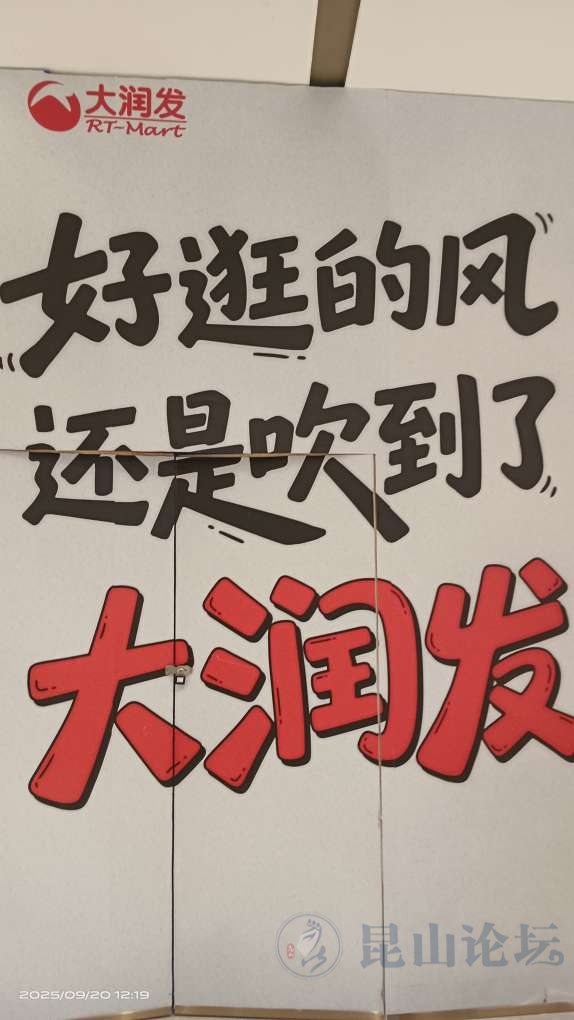 大润发
RT-Mart
好逛的风
还是吹到了
大润发
昆山论坛
2025/09/20 12:19